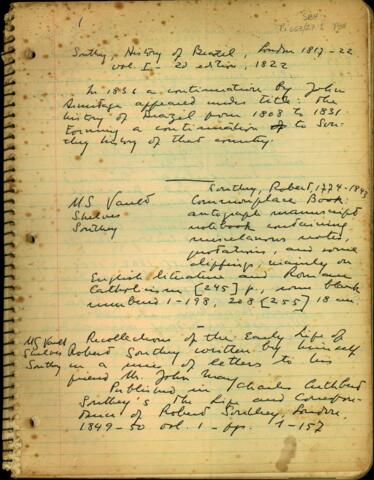 1
SBH
Southey, History of Brazil, London 1817-22
vol. I - 2d edition, 1822
In 1836 a continuation by John
Armitage appeared under title: The
history of Brazil from 1808 to 1831.
Forming a continuation to Sou-
they history of that country.
Southey, Robert, 1774-1843
MS Vault
Shelves
Southey
Commonplace Book:
autograph manuscript
notebook containing
miscelaneous notes,
quotations, and some
clippings, mainly on
English literature and Romane
Catholicism [245] p., some blank
numbered 1-198, 208 [255] 18 cm.
MS Vault
Shelves
Southey
Recollections of the Early Life of
Robert Southey written by himself
in a series of letters to his
friend Mr John May
Published in Charles Cuthbert
Southey's The Life and Correspon-
dence of Robert Southey, London,
1849-50 vol. 1 - pp. 1-157